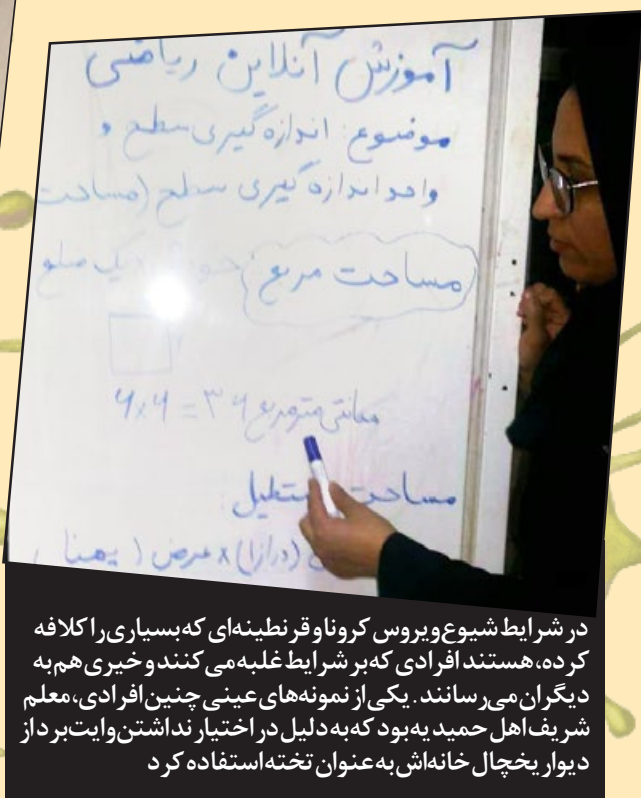 آموزش آنلاین ریاضی
موضوع: اندازه گیری سطح و
واحد اندازه گیری سطح (مساحت
مساحت مربع: یک ضلع
۶×۶ = ۳۶ سانتی مترمربع
مساحت مستطیل
(درازا) × عرض (پهنا)
در شرایط شیوع ویروس کرونا و قرنطینه‌ای که بسیاری را کلافه
کرده، هستند افرادی که بر شرایط غلبه می کنند و خیری هم به
دیگران می‌رسانند. یکی از نمونه‌های عینی چنین افرادی، معلم
شریف اهل حمیدیه بود که به دلیل در اختیار نداشتن وایت برد از
دیوار یخچال خانه‌اش به عنوان تخته استفاده کرد